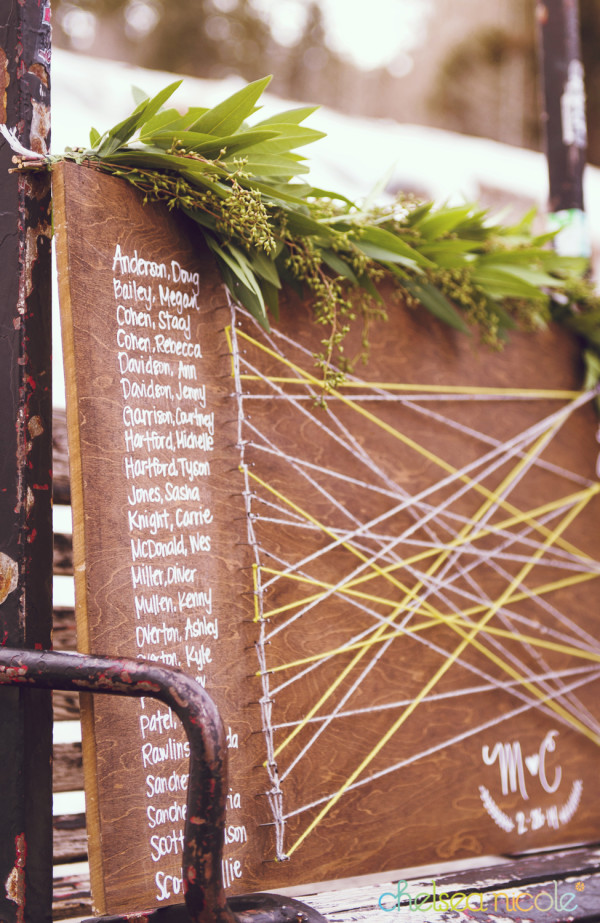 Anderson, Doug
Bailey, Megan
Cohen, Stacy
Cohen, Rebecca
Davidson, Ann
Davidson, Jenny
Garrison, Courtney
Hartford, Michelle
Hartford, Tyson
Jones, Sasha
Knight, Carrie
McDonald, Wes
Miller, Oliver
Mullen, Kenny
Overton, Ashley
Kyle
Patel,
Rawlins
Scott
M ♥ C
2.26.14
chelsea nicole